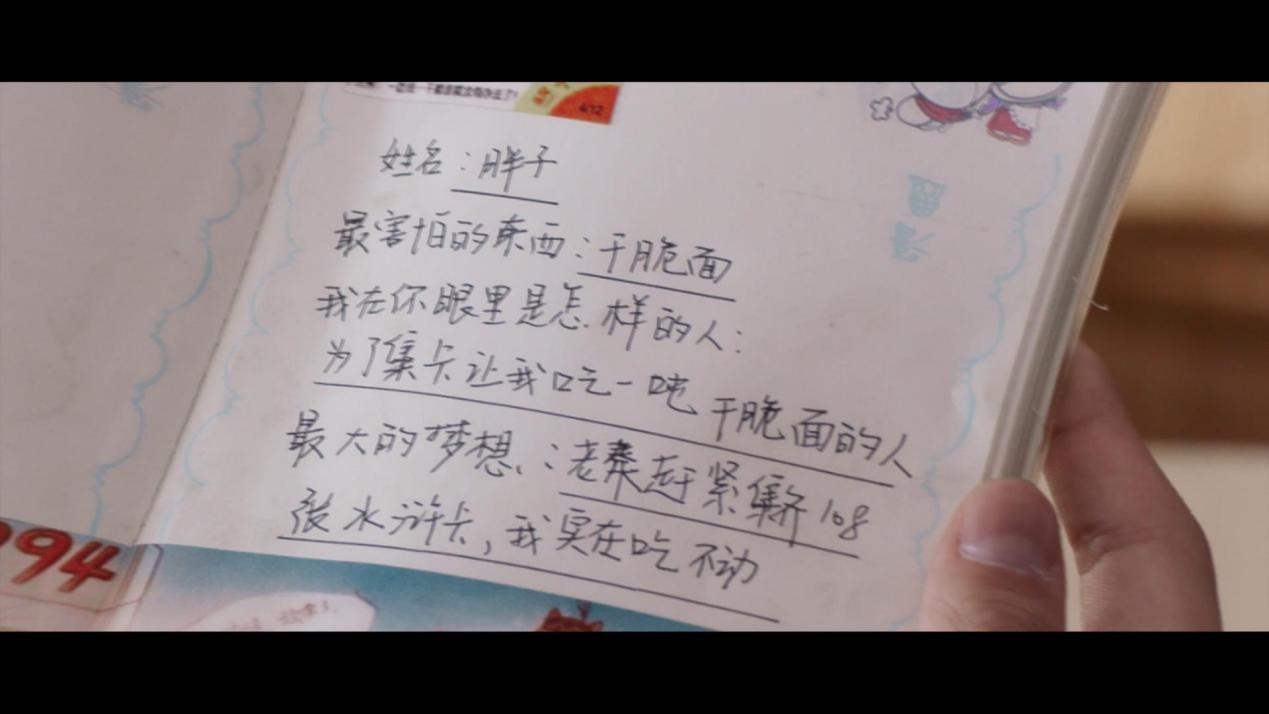 姓名：胖子
最害怕的东西：干脆面
我在你眼里是怎样的人：
为了集卡让我吃一吨干脆面的人
最大的梦想：老秦赶紧集齐108
张水浒卡，我实在吃不动
94